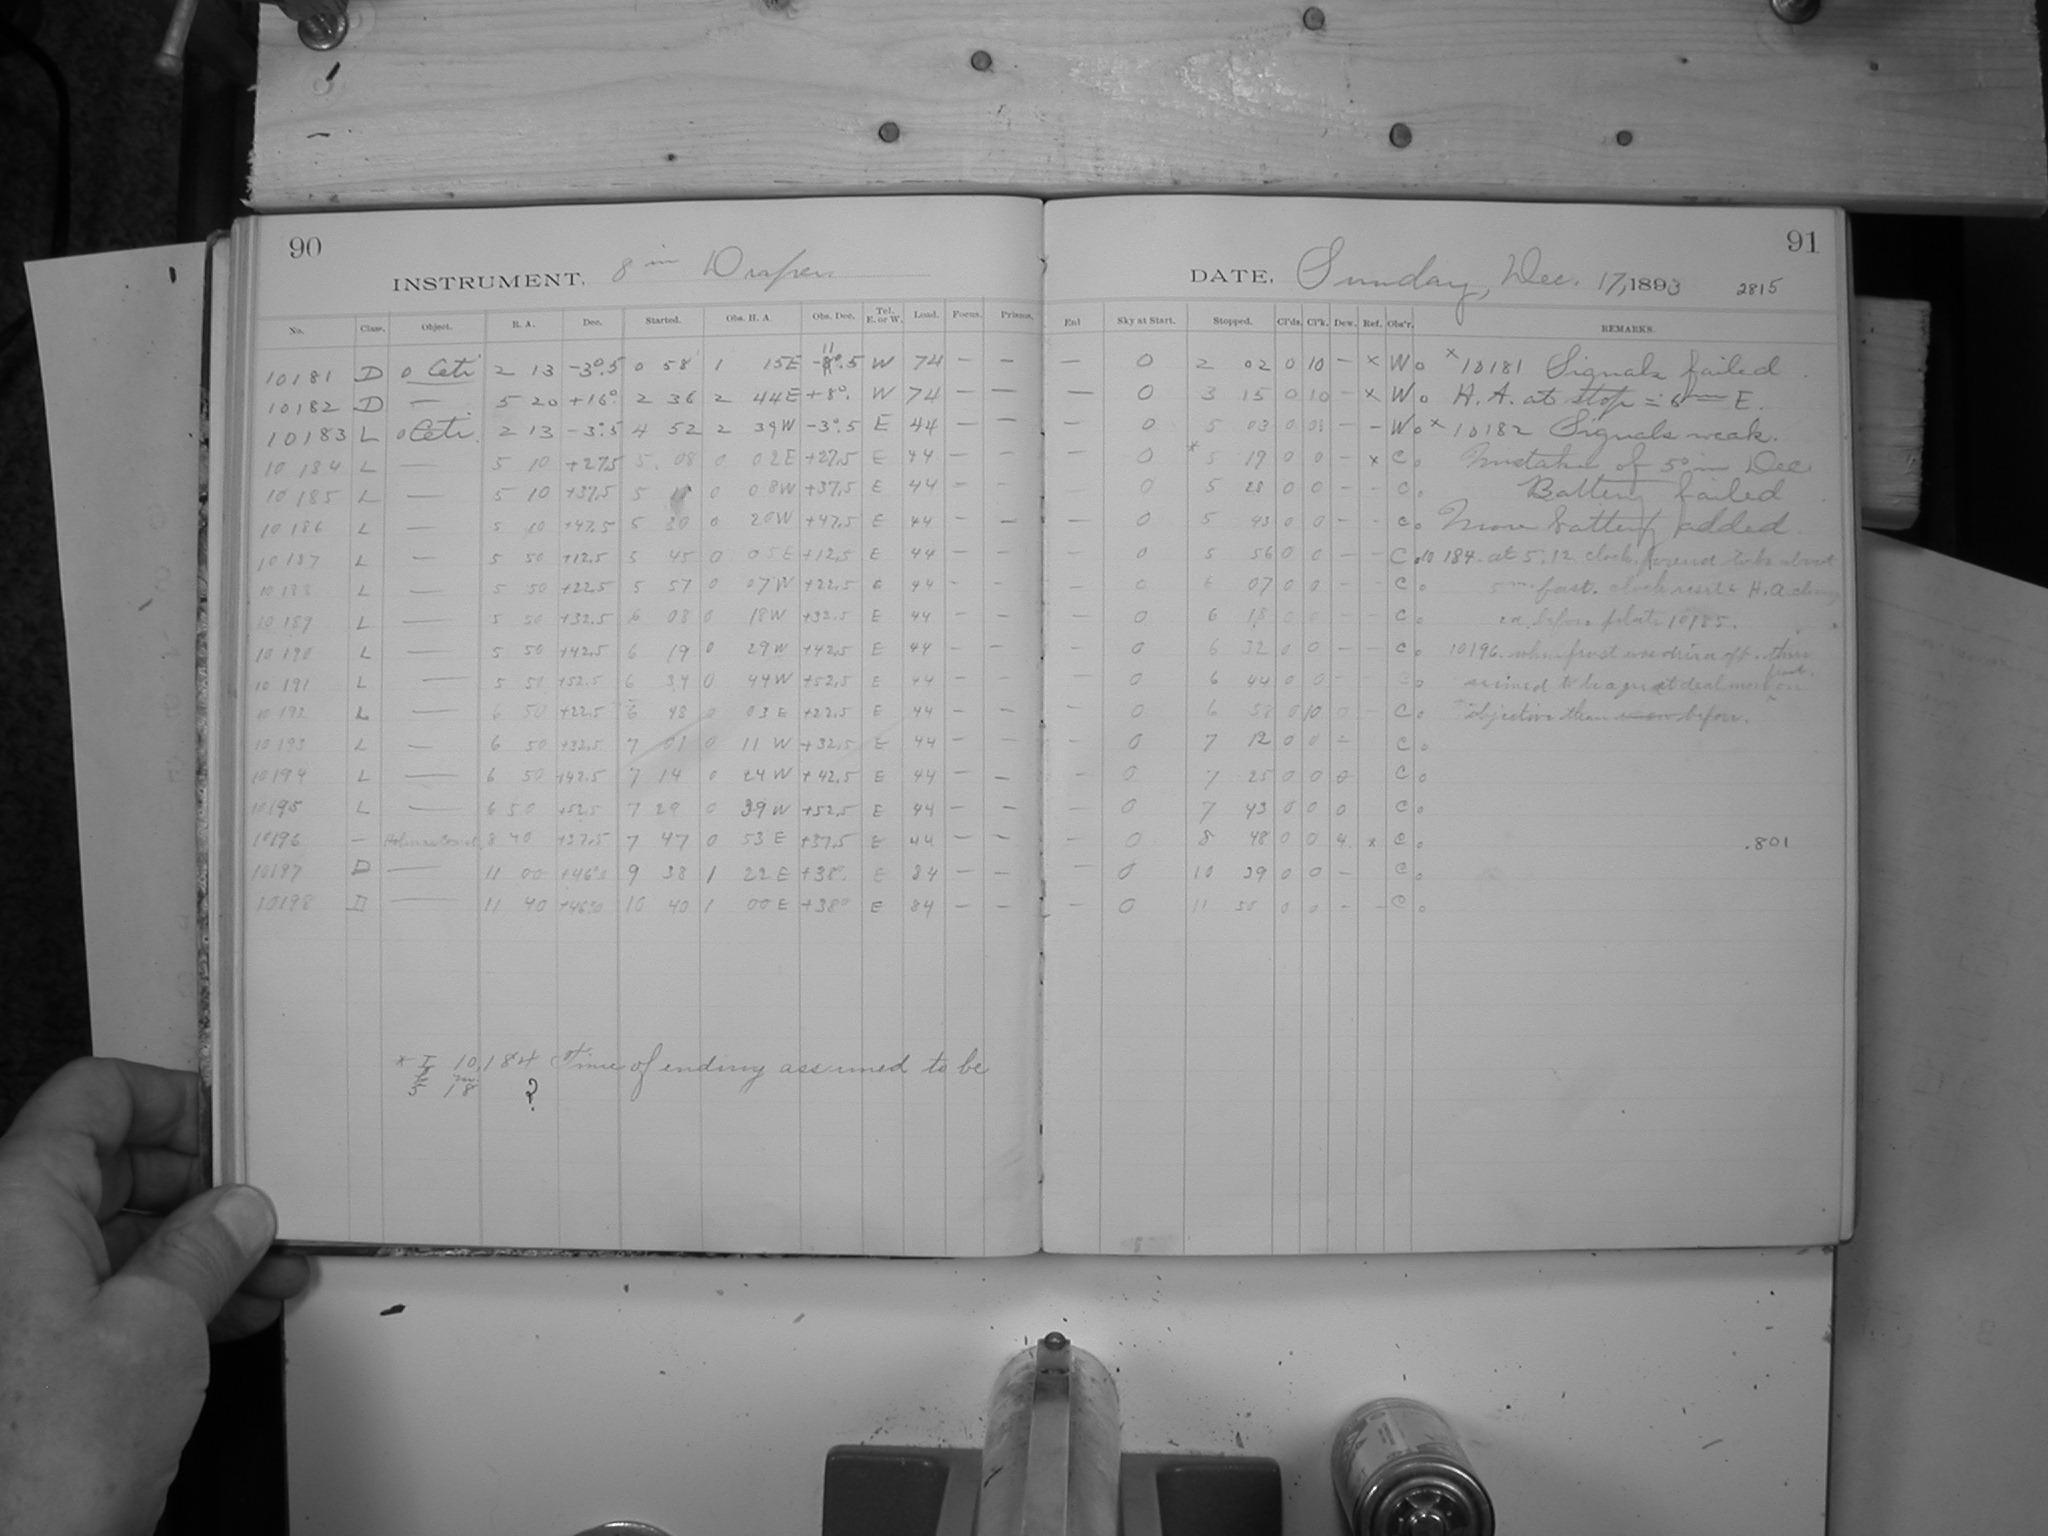 90
INSTRUMENT, 8 in Draper
No. Class. Object. R. A. Dec. Started. Obs. H. A. Obs. Dec. Tel. E. or W. Load. Focus. Prisms.
10181 D o Ceti 2 13 -3°.5 0 58 1 15E -8°.5 11 W 74 — —
10182 D — 5 20 +16° 2 36 2 44E +8°. W 74 — —
10183 L o Ceti 2 13 -3°.5 4 52 2 39W -3°.5 E 44 — —
10184 L — 5 10 +27.5 5 08 0 02E +27.5 E 44 — —
10185 L — 5 10 +37.5 5 18 0 08W +37.5 E 44 — —
10186 L — 5 10 +47.5 5 30 0 20W +47.5 E 44 — —
10187 L — 5 50 +12.5 5 45 0 05E +12.5 E 44 — —
10188 L — 5 50 +22.5 5 57 0 07W +22.5 E 44 — —
10189 L — 5 50 +32.5 6 08 0 18W +32.5 E 44 — —
10190 L — 5 50 +42.5 6 19 0 29W +42.5 E 44 — —
10191 L — 5 50 +52.5 6 34 0 44W +52.5 E 44 — —
10192 L — 6 50 +22.5 6 48 0 03E +22.5 E 44 — —
10193 L — 6 50 +32.5 7 01 0 11W +32.5 E 44 — —
10194 L — 6 50 +42.5 7 14 0 24W +42.5 E 44 — —
10195 L — 6 50 +52.5 7 29 0 39W +52.5 E 44 — —
10196 — 8 40 +37.5 7 47 0 53E +37.5 E 44 — —
10197 D — 11 00 +46° 9 38 1 22E +38°. E 84 — —
10198 D — 11 40 +46° 10 40 1 00E +38° E 84 — —
* I 10,184 Time of ending assumed to be
5 h 18 m ?
91
DATE, Sunday, Dec. 17, 1893 2815
Enl Sky at Start. Stopped. Cl'ds. Cl'k. Dew. Ref. Obs'r. REMARKS.
— 0 2 02 0 10 — x Wo x 10181 Signals failed.
— 0 3 15 0 10 — x Wo H. A. at stop = 6m E.
— 0 5 03 0 — — Wo x 10182 Signals weak.
— 0 * 5 19 0 0 — x Co Mistake of 5° in Dec
— 0 5 28 0 0 — — Co Battery failed
— 0 5 43 0 0 — — Co More battery added.
— 0 5 56 0 0 — — Co 10184. at 5:12 clock found to be about
— 0 6 07 0 0 — — Co 5m. fast. clock reset & H.A.
— 0 6 18 0 0 — — Co before plate 10185.
— 0 6 32 0 0 — — Co 10196. when frost was driven off. there
— 0 6 44 0 0 — — Co seemed to be a great deal more frost on
— 0 6 58 0 10 0 — Co objective than before.
— 0 7 12 0 0 — Co
— 0 7 25 0 0 0 Co
— 0 7 43 0 0 0 Co
— 0 8 48 0 0 4 x Co .801
— 0 10 39 0 0 — Co
— 0 11 0 0 — — Co